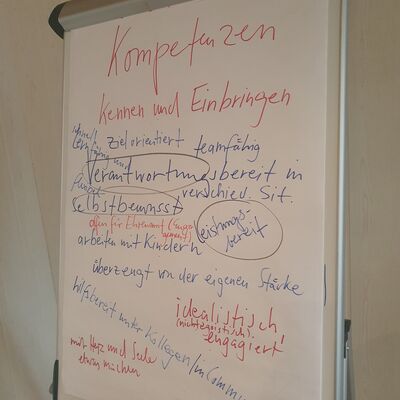 Kompetenzen
Kennen und Einbringen
schnell
Lernfähig und
zielorientiert teamfähig
Verantwortungsbereit in
verschied. Sit.
selbstbewusst
Leistungs-
bereit
offen für Ehrenamt (Enga-
gement)
arbeiten mit Kindern
überzeugt von der eigenen Stärke
hilfsbereit unter Kollegen/in
idealistisch,
(nicht egoistisch)
engagiert
mit Herz und Seele
etwas machen